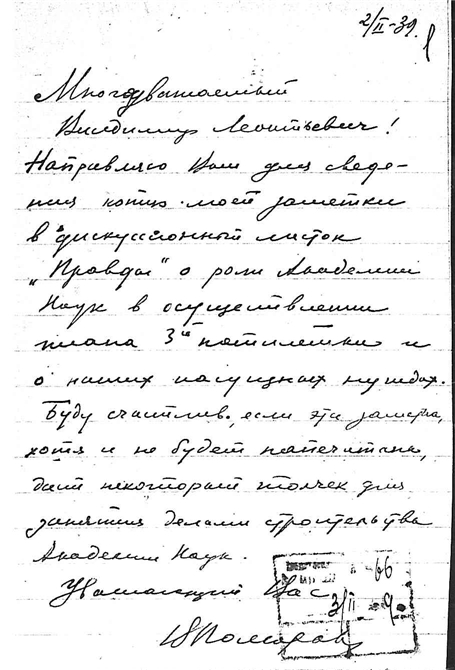 2/II-39.
Многоуважаемый
Владимир Леонтьевич!
Направляю Вам для сведе-
ния копию моей заметки
в дискуссионный листок
„Правды" о роли Академии
Наук в осуществлении
плана 3й пятилетки и
о наших насущных нуждах.
Буду счастлив, если эта заметка,
хотя и не будет напечатана,
даст некоторый толчек для
занятия делами строительства
Академии Наук.
Уважающий Вас
66
3/II